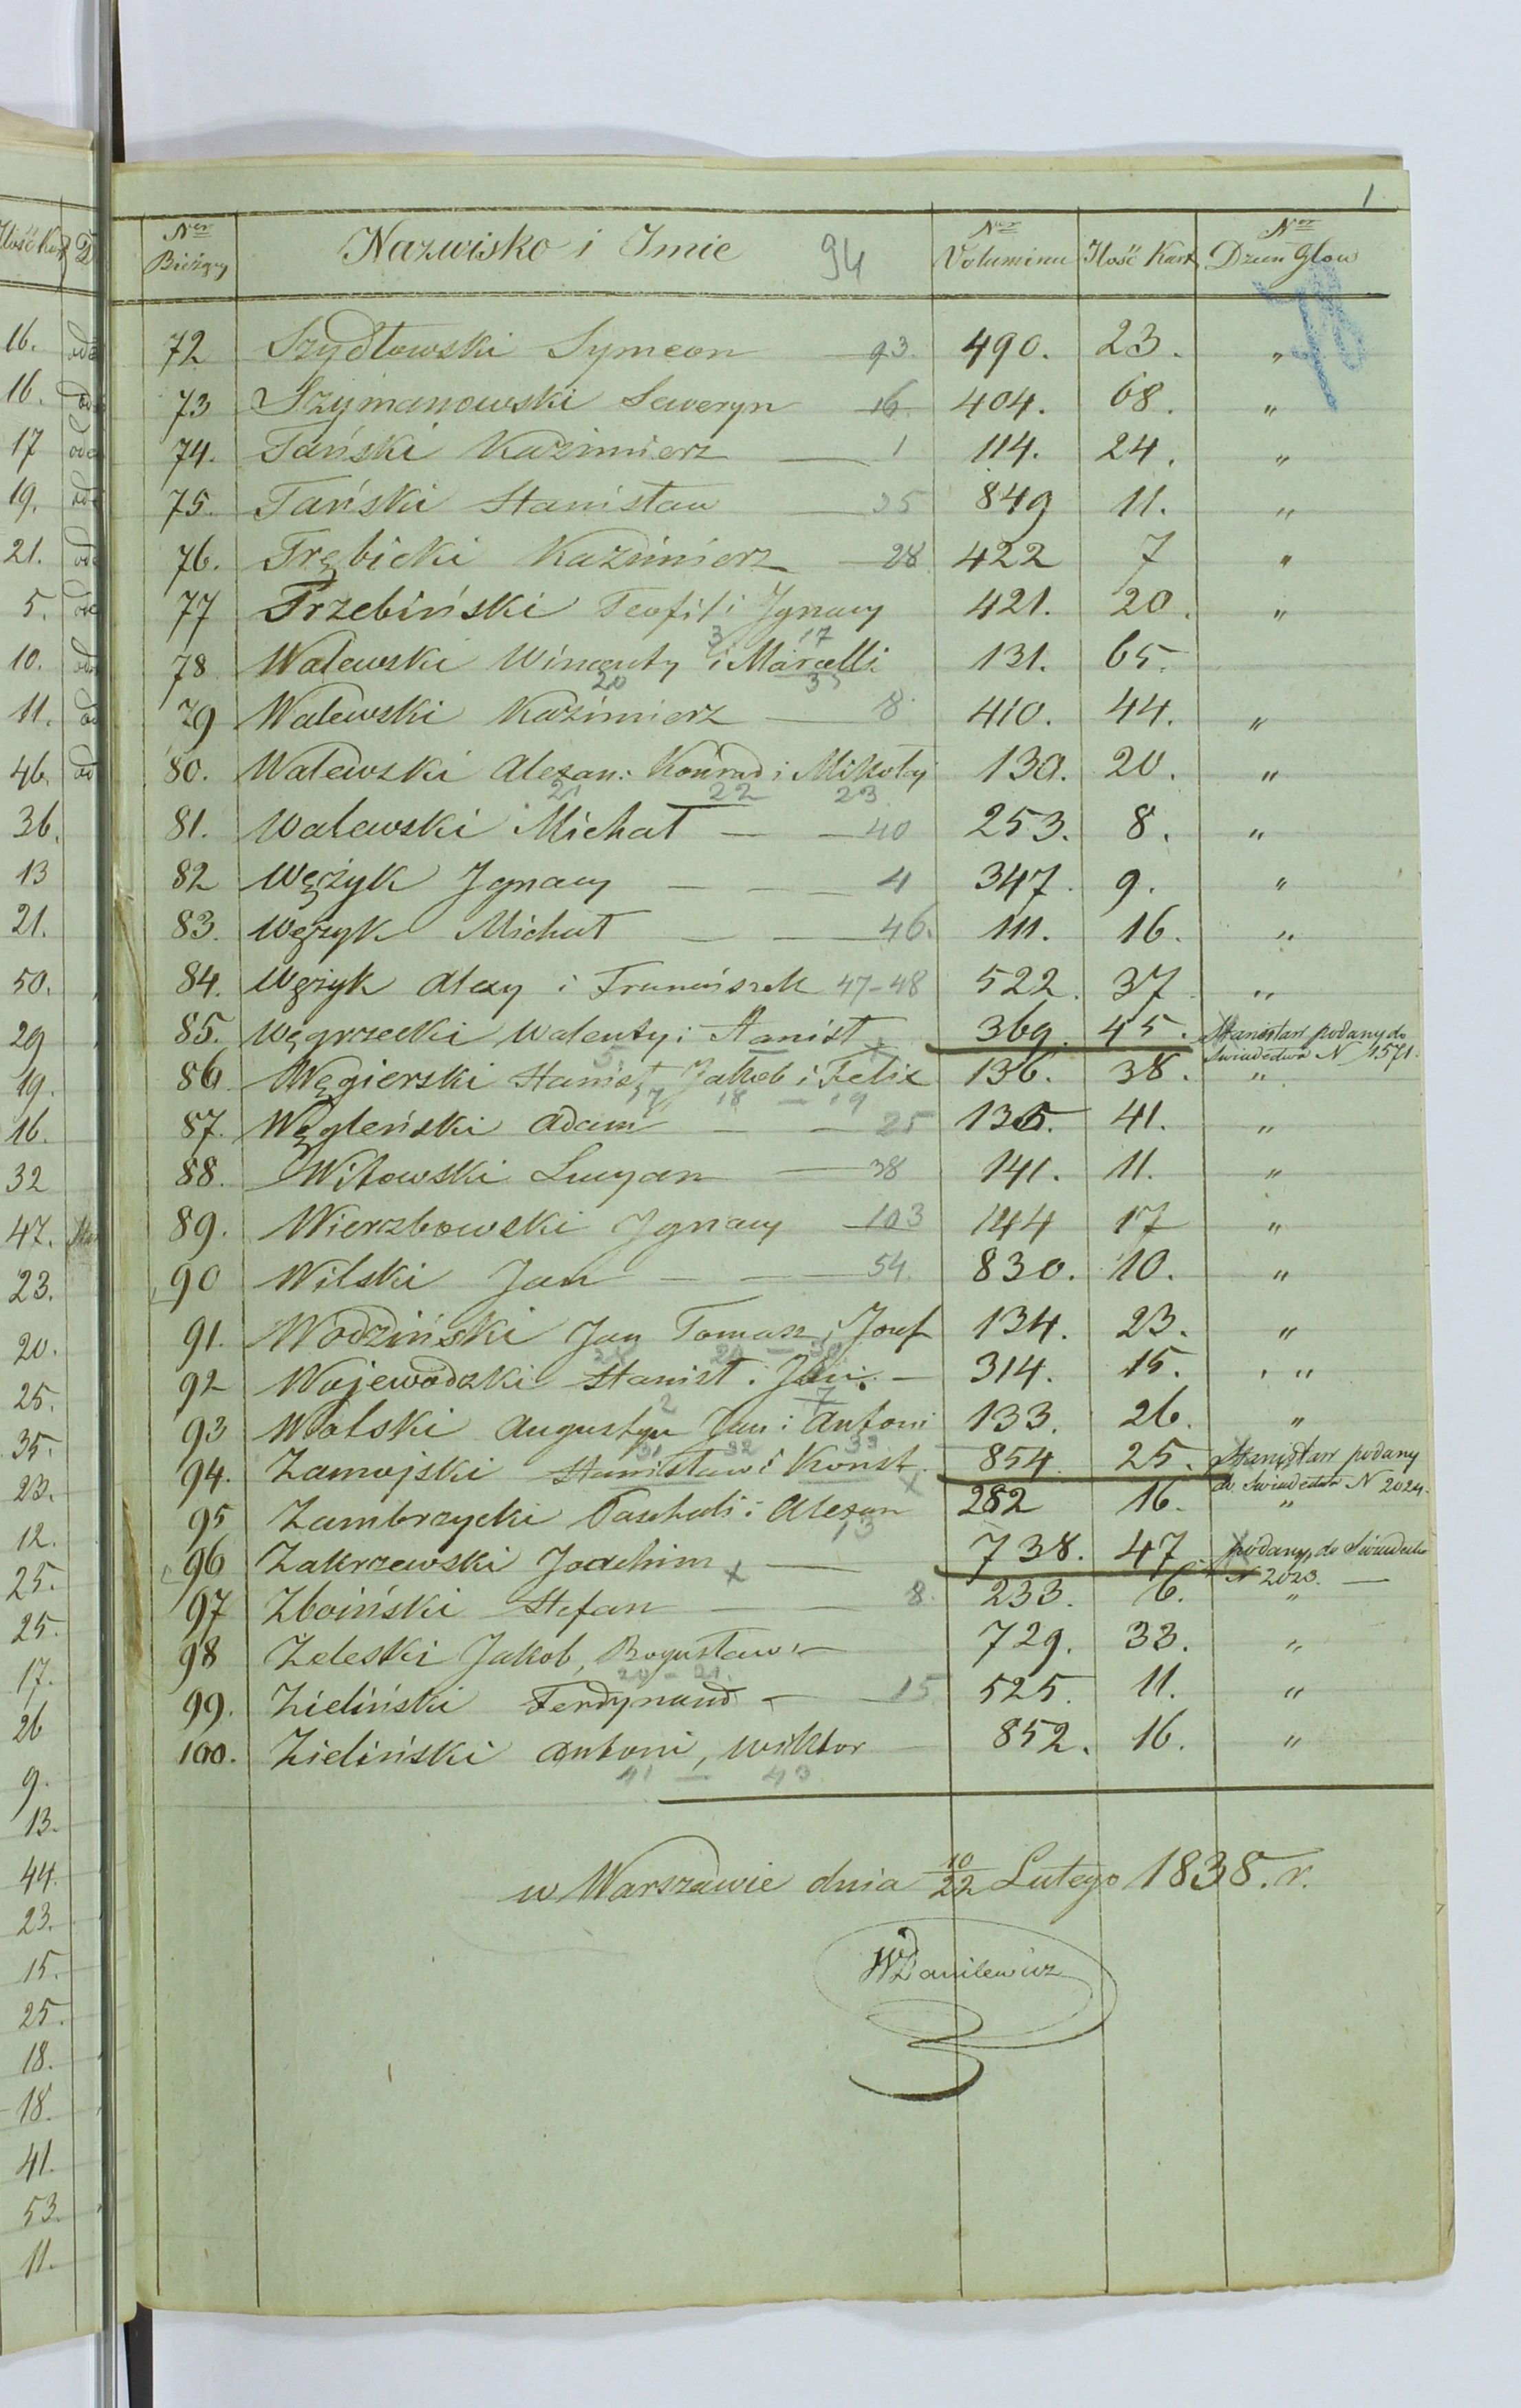 1
Ner Bieżący Nazwisko i Imie 94 Ner Voluminu Ilość Kart Ner Dzien Głow
72 Szydłowski Symeon — 93. 490. 23. "
73 Szymanowski Seweryn — 16. 404. 68. "
74. Tański Kazimierz — 1 114. 24. "
75. Tański Stanisław — 35 849 11. "
76. Trębicki Kazimierz — 28 422 7 "
77 Trzebiński Teofil i Ignacy 421. 20. "
3 17
78 Walewski Wincenty i Marcelli 131. 65.
20 35
79 Walewski Kazimierz — 8. 410. 44. "
80. Walewski Alexan: Konrad i Mikołaj 130. 20. "
21 22 23
81. Walewski Michał — — 40 253. 8. "
82 Wężyk Ignacy — — 4 347. 9. "
83. Wężyk Michał — — 46. 111. 16. "
84. Wężyk Alexy i Franciszek 47-48 522. 37 "
85. Węgrzecki Walenty i Stanisł 369. 45. Stanisław podany do
5 świadectwa N 1571.
86 Węgierski Stanisł Jakób i Felix 136. 38. "
17 18 — 19
87. Węgleński Adam — — 25 135. 41. "
88. Witowski Lucyan — 38 141. 11. "
89. Wierzbowski Ignacy 103 144 17 "
90 Wilski Jan — — 54. 830. 10. "
91. Wodziński Jan Tomasz i Józef 134. 23. "
92 Wojewodzki Stanisł: Jan — 314. 15. "
2 7
93 Wolski Augustyn Jan i Antoni 133. 26. "
31 32 33
94. Zamojski Stanisław i Konst. 854 25. Stanisław podany
x do świadectwa N 2024.
95 Zambrzycki Paschalis i Alexan 282 16. "
13
96 Zakrzewski Joachim x — 738. 47 podany do świadectwa
N 2023. —
97 Zboiński Stefan — — 8. 233. 6. "
98 Zeleski Jakob, Bogusław — 729. 33. "
20 - 21.
99. Zieliński Ferdynand — 15 525. 11. "
100. Zieliński Antoni, Wiktor 852. 16. "
41 — 43
w Warszawie dnia 10/22 Lutego 1838. r.
WDanilewicz